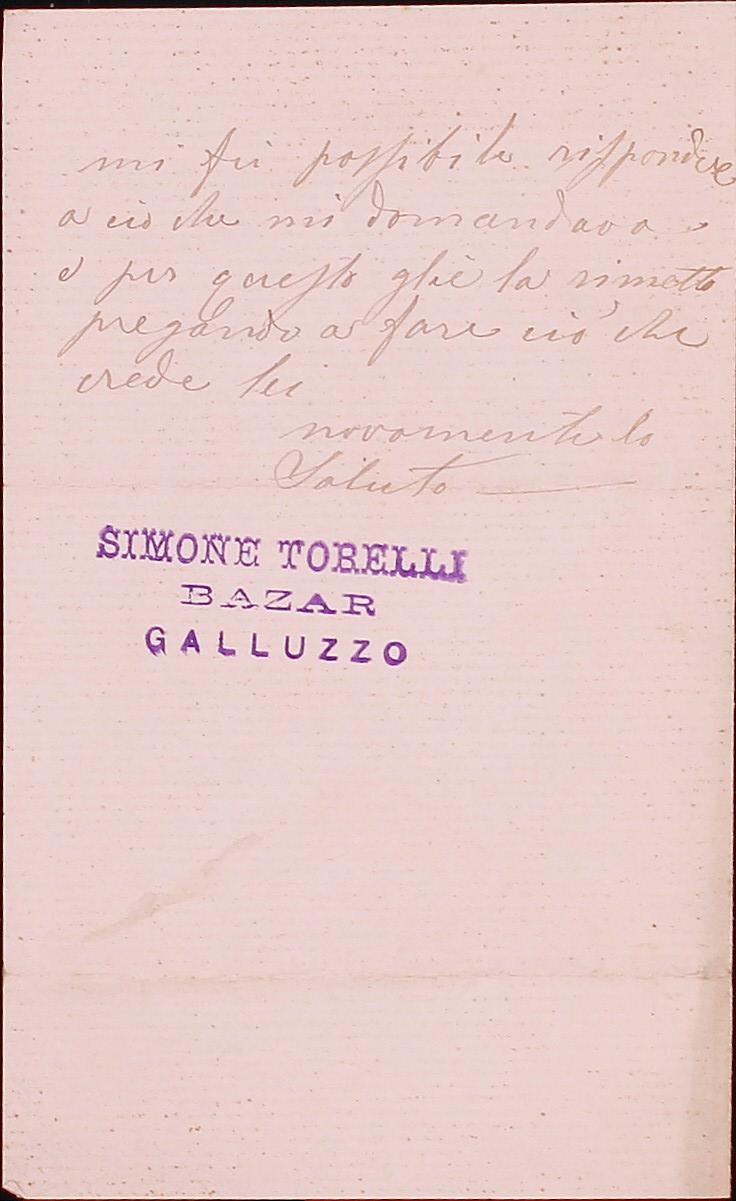 mi fù possibile rispondere
a ciò che mi domandava
e per questo gliè la rimetto
pregando a fare ciò che
crede lei
novamente lo
Saluto
SIMONE TORELLI
BAZAR
GALLUZZO